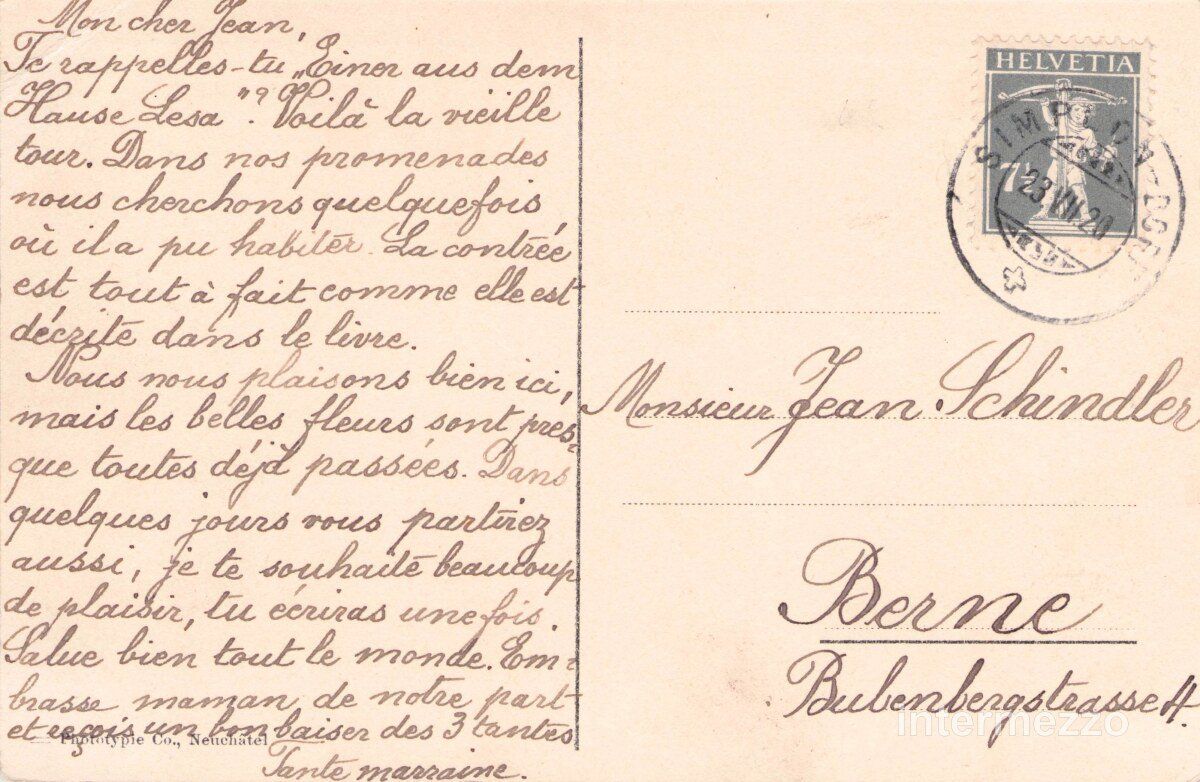 Mon cher Jean,
Te rappelles-tu „Einer aus dem
Hause Lesa"? Voilà la vieille
tour. Dans nos promenades
nous cherchons quelquefois
où il a pu habiter. La contrée
est tout à fait comme elle est
décrite dans le livre.
Nous nous plaisons bien ici,
mais les belles fleurs sont pres-
que toutes déjà passées. Dans
quelques jours vous partirez
aussi, je te souhaite beaucoup
de plaisir, tu écriras une fois.
Salue bien tout le monde. Em-
brasse maman de notre part
et reçois un bon baiser des 3 tantes
Tante marraine.
Phototypie Co., Neuchâtel
HELVETIA
7½
SIMPLON
23.VII.20
Monsieur Jean Schindler
Berne
Bubenbergstrasse 4.
intermezzo